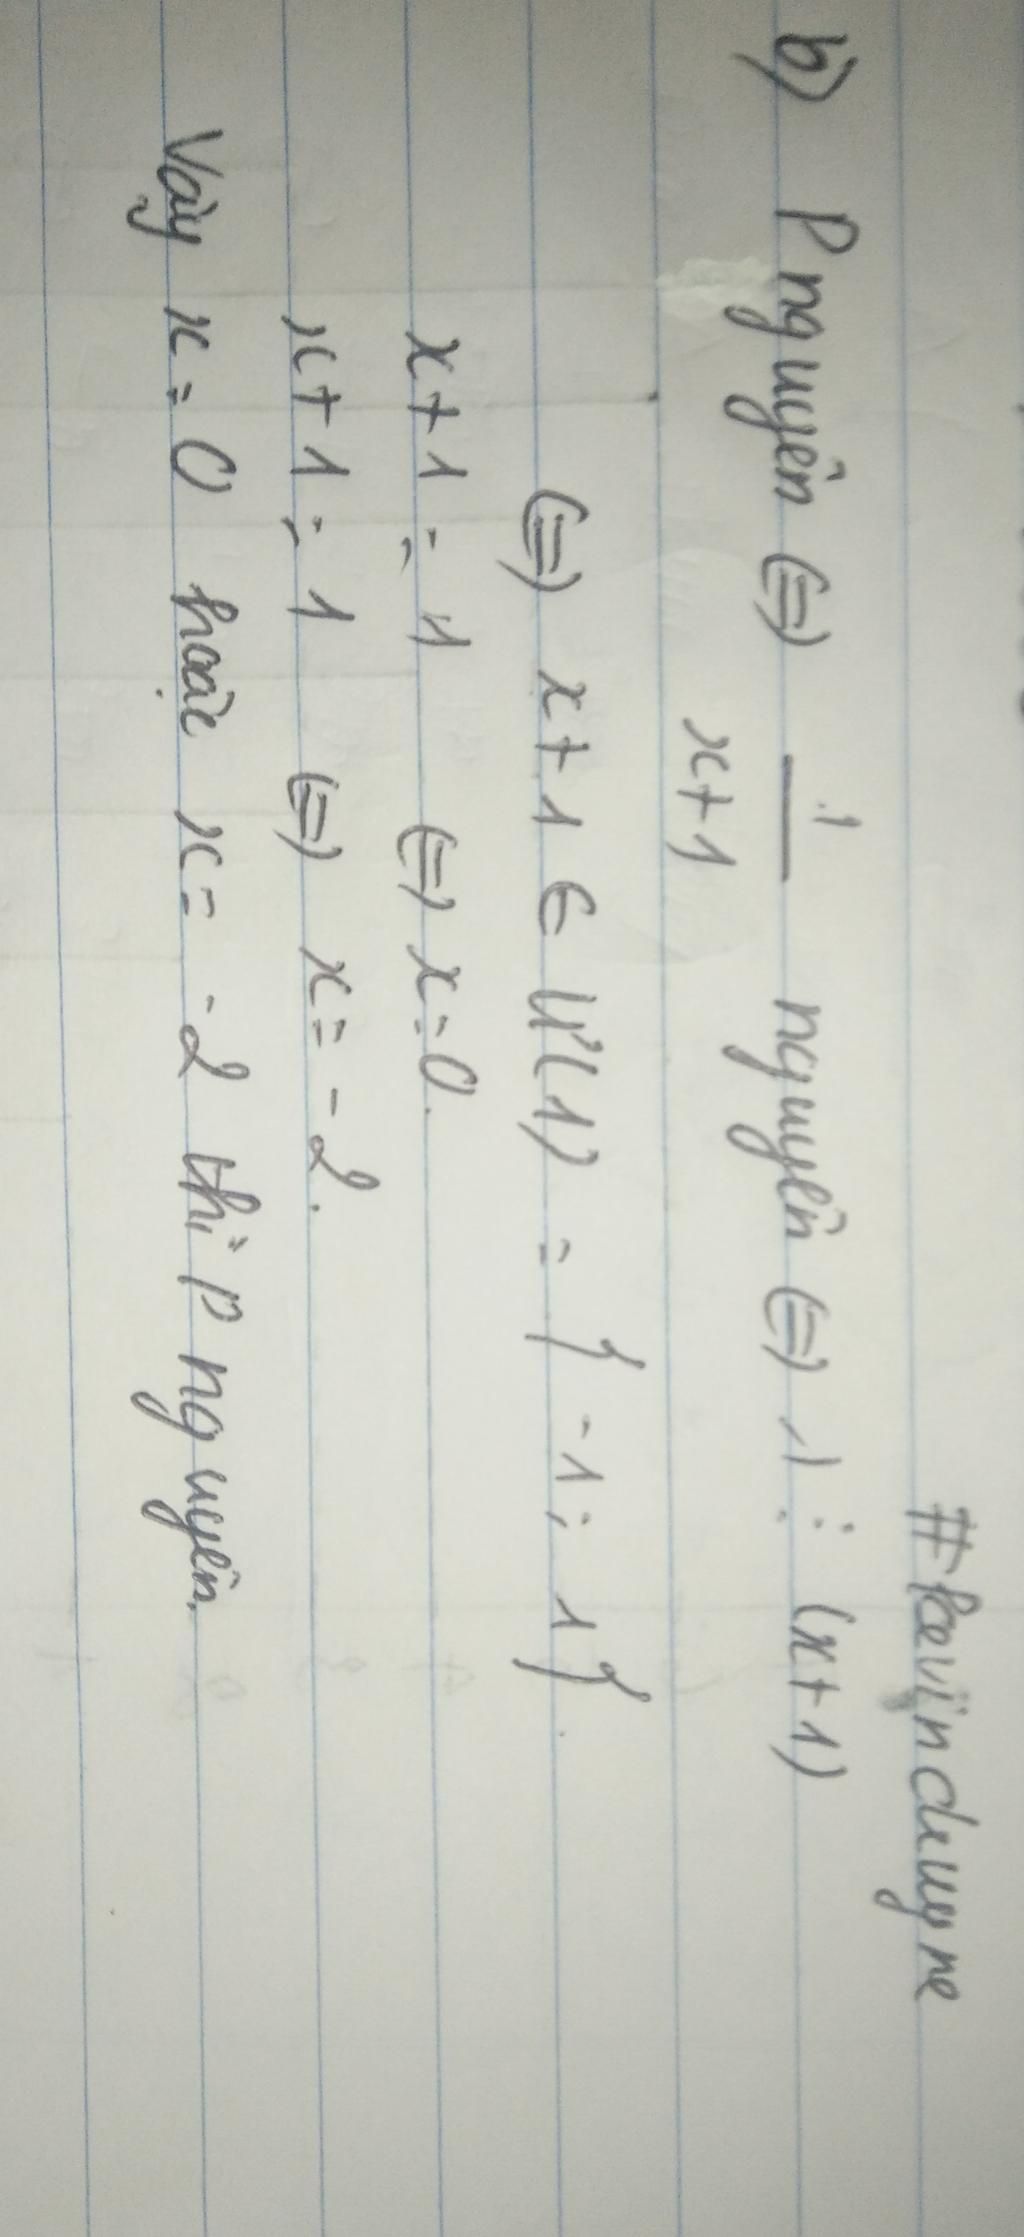 #kevinduyne
b) P nguyên (=) 1/x+1 nguyên (=) 1 ⋮ (x+1)
(=) x+1 ∈ Ư(1) = { -1; 1}.
x+1 = 1 (=) x=0.
x+1 = 1 (=) x= -2.
Vậy x=0 hoặc x= -2 thì P nguyên.